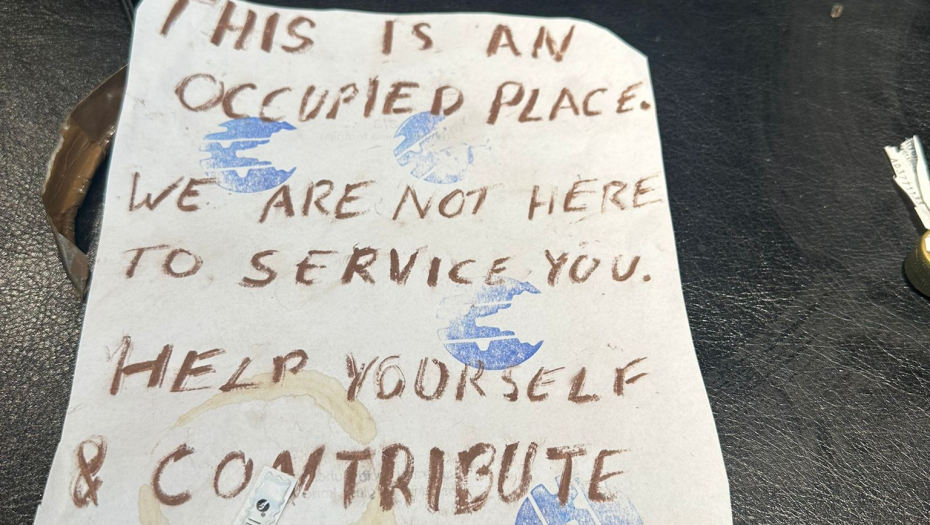 THIS IS AN
OCCUPIED PLACE.
WE ARE NOT HERE
TO SERVICE YOU.
HELP YOURSELF
& CONTRIBUTE